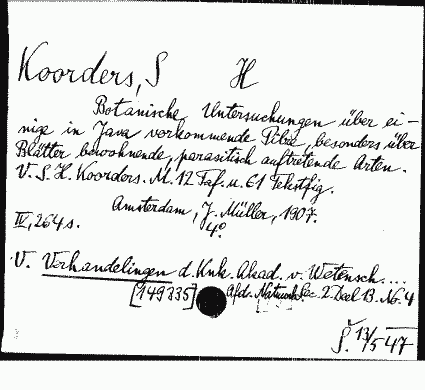 Koorders, S H
Botanische Untersuchungen über ei-
nige in Java vorkommende Pilze, besonders über
Blätter bewohnende, parasitisch auftretende Arten.
V. S. H. Koorders. M. 12 Taf. u. 61 Textfig.
Amsterdam, J. Müller, 1907.
IV, 264 s. 4°.
V. Verhandelingen d. Knk. Akad. v. Wetensch....
[149335] Afd. Natuurk. Sec. 2. Deel 13. No. 4
Š. 13/5 47